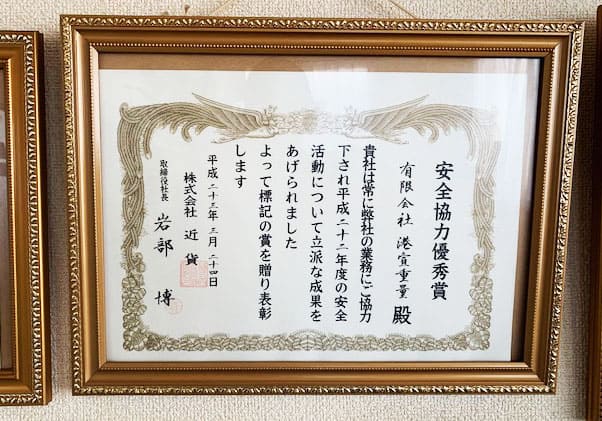 安全協力優秀賞
有限会社 港宣重量 殿
貴社は常に弊社の業務にご協力
下され平成二十二年度の安全
活動について立派な成果を
あげられました
よって標記の賞を贈り表彰
します
平成二十三年三月二十四日
株式会社 近貨
取締役社長 岩部 博